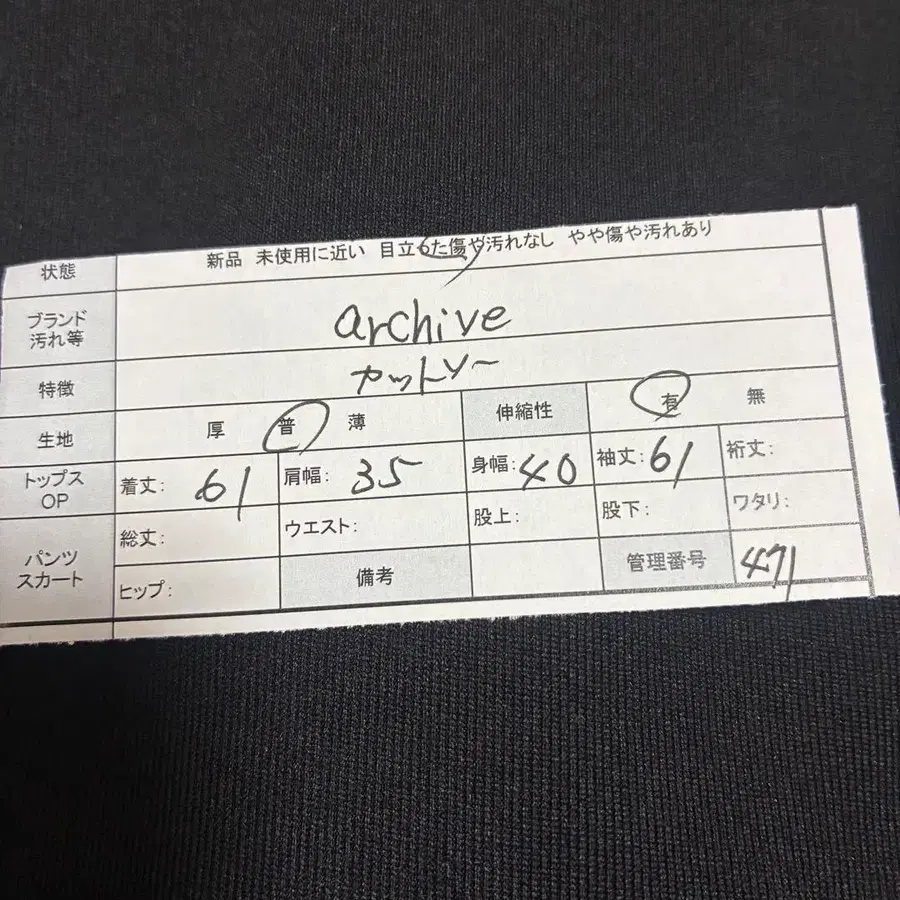 状態 新品 未使用に近い 目立った傷や汚れなし やや傷や汚れあり
ブランド 汚れ等 archive
特徴 カットソー
生地 厚 普 薄 伸縮性 有 無
トップス OP 着丈: 61 肩幅: 35 身幅: 40 袖丈: 61 裄丈:
パンツ スカート 総丈: ウエスト: 股上: 股下: ワタリ:
ヒップ: 備考 管理番号 471